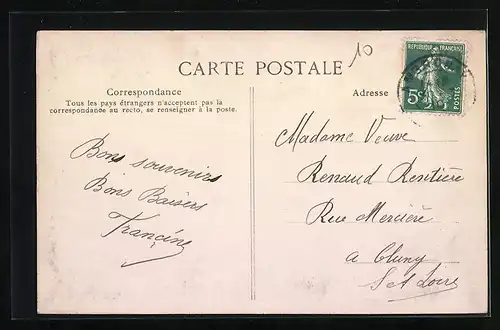 10
CARTE POSTALE
RÉPUBLIQUE FRANÇAISE
5c
POSTES
Correspondance
Tous les pays étrangers n'acceptent pas la
correspondance au recto, se renseigner à la poste.
Bons souvenirs
Bons Baisers
Francine
Adresse
Madame Veuve
Renaud Rentière
Rue Mercière
a Cluny
S et Loire